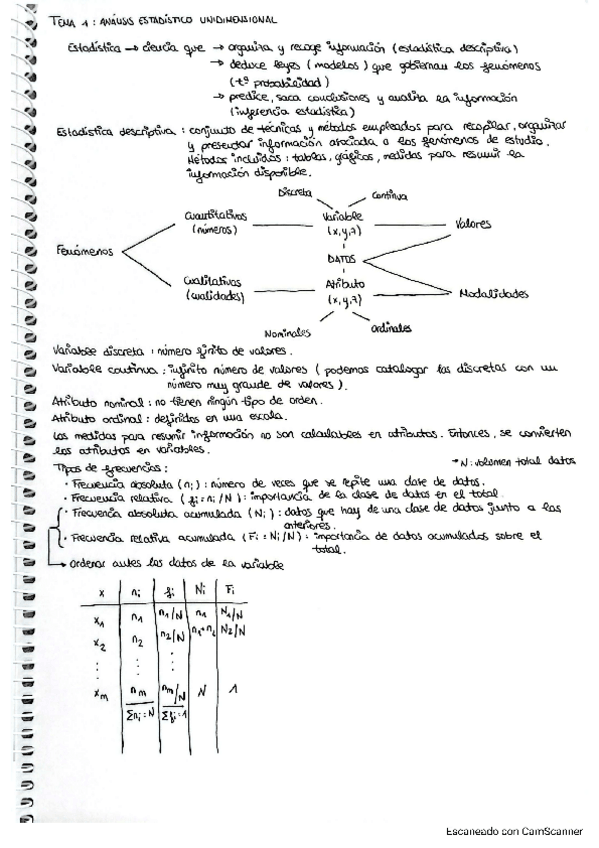 TEMA 1 : ANÁLISIS ESTADÍSTICO UNIDIMENSIONAL
Estadística → ciencia que → organiza y recoge información (estadística descriptiva)
→ deduce leyes (modelos) que gobiernan los fenómenos
(tª probabilidad)
→ predice, saca conclusiones y analiza la información
(inferencia estadística)
Estadística descriptiva : conjunto de técnicas y métodos empleados para recopilar, organizar
y presentar información asociada a los fenómenos de estudio.
Métodos incluidos : tablas, gráficos, medidas para resumir la
información disponible.
Discreta Continua
Cuantitativos Variable Valores
(números) (x,y,z)
Fenómenos DATOS
Cualitativos Atributo Modalidades
(cualidades) (x,y,z)
Nominales Ordinales
Variable discreta : número finito de valores.
Variable continua : infinito número de valores (podemos catalogar las discretas con un
número muy grande de valores).
Atributo nominal : no tienen ningún tipo de orden.
Atributo ordinal : definidos en una escala.
Las medidas para resumir información no son calculables en atributos. Entonces, se convierten
los atributos en variables.
→ N : volumen total datos
Tipos de frecuencias :
· Frecuencia absoluta (ni) : número de veces que se repite una clase de datos.
· Frecuencia relativa (fi = ni/N) : importancia de la clase de datos en el total.
· Frecuencia absoluta acumulada (Ni) : datos que hay de una clase de datos junto a las
anteriores.
· Frecuencia relativa acumulada (Fi = Ni/N) : importancia de datos acumulados sobre el
total.
→ Ordenar antes los datos de la variable
x ni fi Ni Fi
x1 n1 n1/N n1 N1/N
x2 n2 n2/N n1+n2 N2/N
: : :
xm nm nm/N N 1
Σni = N Σfi = 1
Escaneado con CamScanner